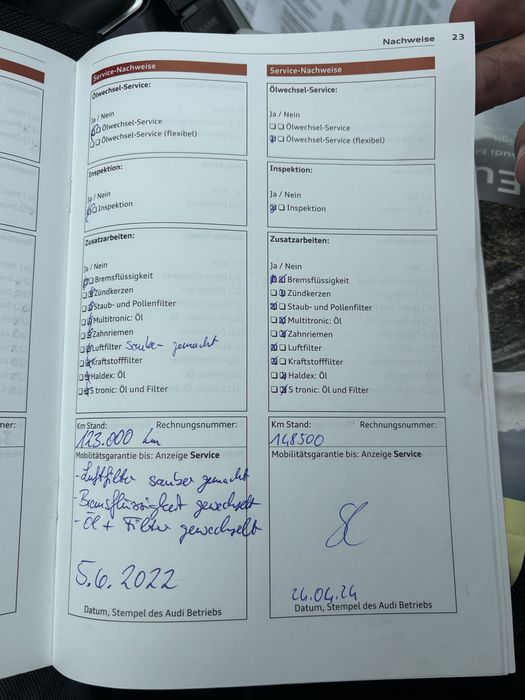 Nachweise 23
Service-Nachweise
Ölwechsel-Service:
Ja / Nein
Ölwechsel-Service
Ölwechsel-Service (flexibel)
Inspektion:
Ja / Nein
Inspektion
Zusatzarbeiten:
Ja / Nein
Bremsflüssigkeit
Zündkerzen
Staub- und Pollenfilter
Multitronic: Öl
Zahnriemen
Luftfilter sauber gemacht
Kraftstofffilter
Haldex: Öl
S tronic: Öl und Filter
Km Stand: Rechnungsnummer:
123.000 km
Mobilitätsgarantie bis: Anzeige Service
- Luftfilter sauber gemacht
- Bremsflüssigkeit gewechselt
- Öl + Filter gewechselt
5.6.2022
Datum, Stempel des Audi Betriebs
Service-Nachweise
Ölwechsel-Service:
Ja / Nein
Ölwechsel-Service
Ölwechsel-Service (flexibel)
Inspektion:
Ja / Nein
Inspektion
Zusatzarbeiten:
Ja / Nein
Bremsflüssigkeit
Zündkerzen
Staub- und Pollenfilter
Multitronic: Öl
Zahnriemen
Luftfilter
Kraftstofffilter
Haldex: Öl
S tronic: Öl und Filter
Km Stand: Rechnungsnummer:
148500
Mobilitätsgarantie bis: Anzeige Service
26.04.24
Datum, Stempel des Audi Betriebs